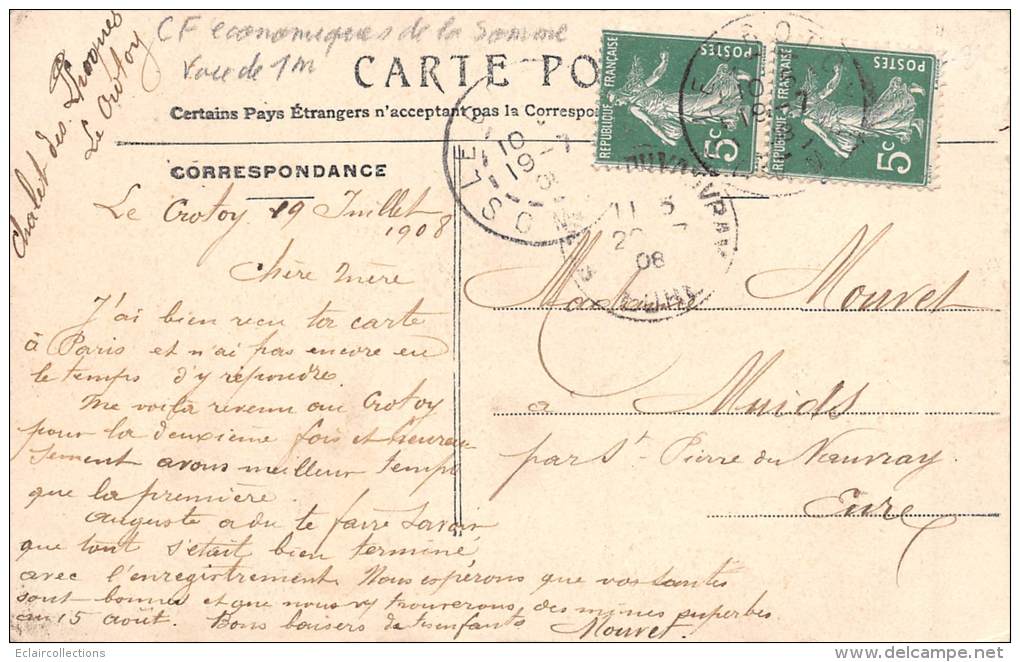 CF economiques de la Somme
Voie de 1m
CARTE PO
Certains Pays Étrangers n'acceptent pas la Correspon
Chalet des
Le Crotoy
CORRESPONDANCE
RÉPUBLIQUE FRANÇAISE
POSTES
5c
RÉPUBLIQUE FRANÇAISE
POSTES
5c
10
19 -7
08
11
20 -7
08
EURE
Le Crotoy 19 Juillet
1908
Chère Mère
J'ai bien reçu ta carte
à Paris et n'ai pas encore eu
le temps d'y répondre.
Me voilà revenu au Crotoy
pour la deuxième fois et heureu-
sement avons meilleur temps
que la première.
Auguste a du te faire savoir
que tout s'était bien terminé
avec l'enregistrement. Nous espérons que vos santés
sont bonnes et que nous vs trouverons des mines superbes
au 15 août. Bons baisers de tes enfants
Mouvet.
Madame Mouvet
à Muids
par St Pierre du Vauvray
Eure
Eclaircollections
delcampe.net